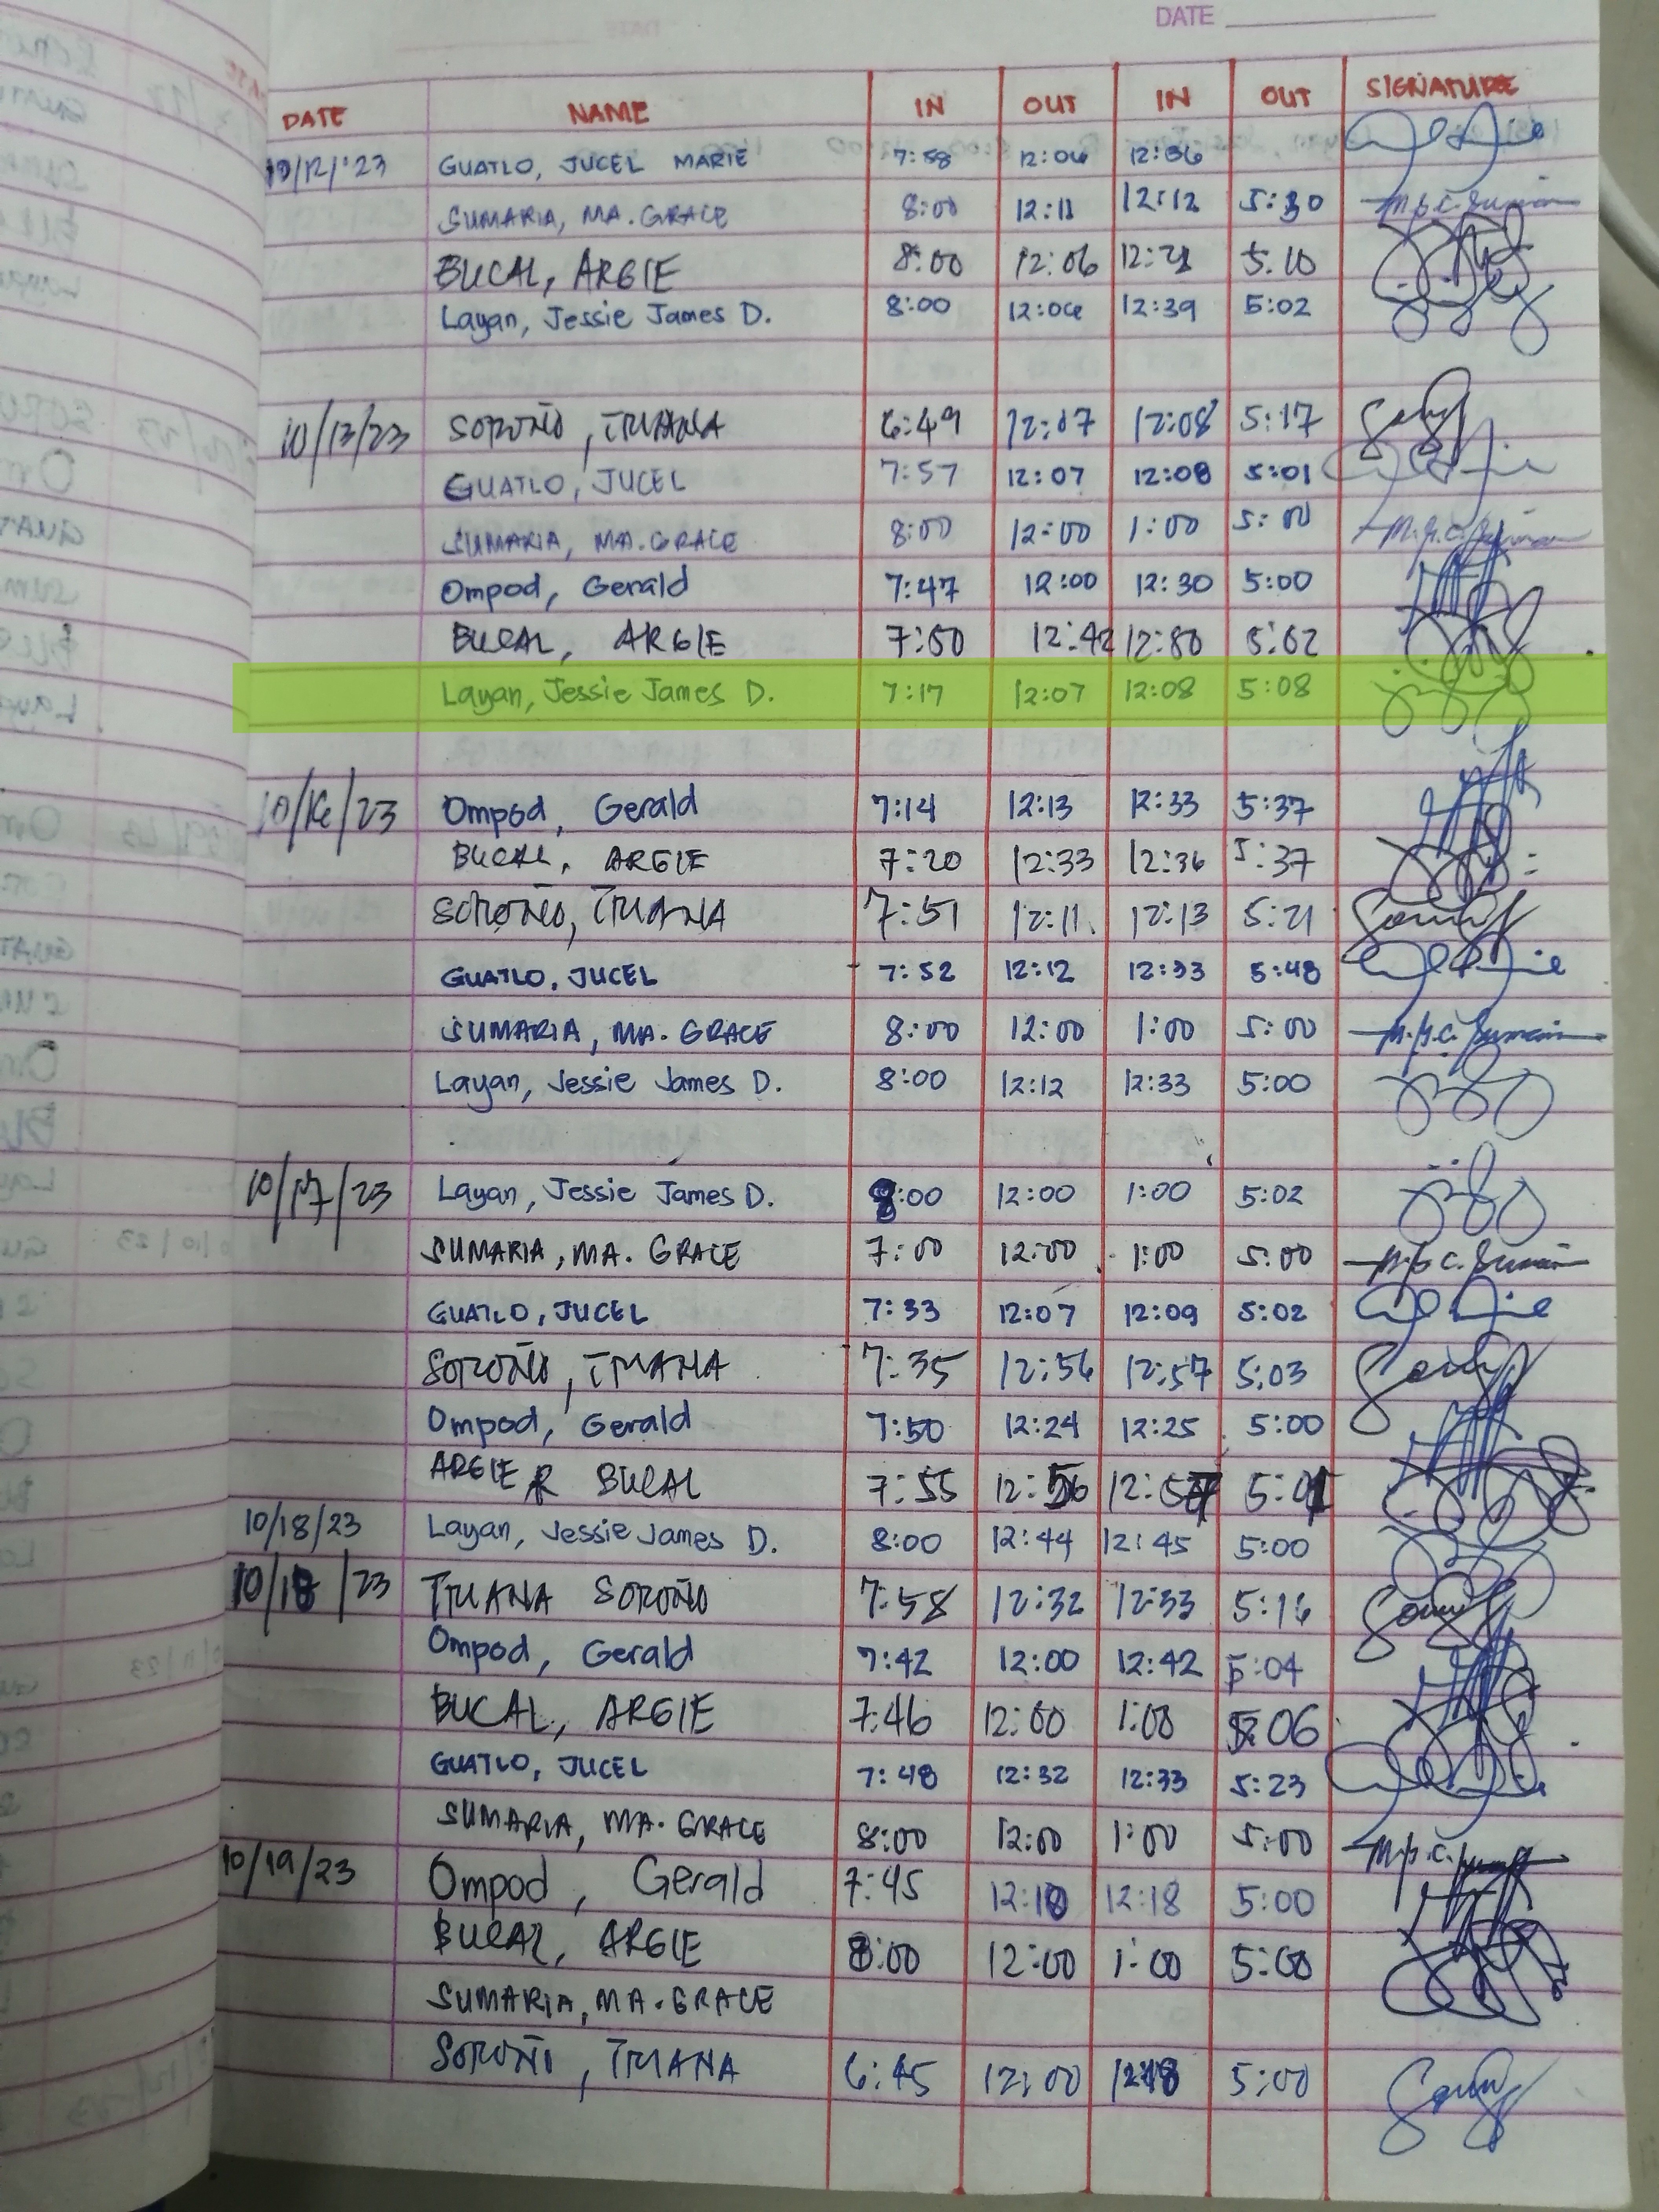 DATE
DATE NAME IN OUT IN OUT SIGNATURE
10/12/'23 GUATLO, JUCEL MARIE 7:58 12:06 12:36
SUMARIA, MA. GRACE 8:00 12:11 12:12 5:30
BUCAL, ARGIE 8:00 12:06 12:21 5:10
Layan, Jessie James D. 8:00 12:06 12:39 5:02
10/13/23 SOROÑO, TRIANA 6:49 12:07 12:08 5:17
GUATLO, JUCEL 7:57 12:07 12:08 5:01
SUMARIA, MA. GRACE 8:00 12:00 1:00 5:00
Ompod, Gerald 7:47 12:00 12:30 5:00
BUCAL, ARGIE 7:50 12:42 12:50 5:02
Layan, Jessie James D. 7:17 12:07 12:08 5:08
10/16/23 Ompod, Gerald 7:14 12:13 12:33 5:37
BUCAL, ARGIE 7:20 12:33 12:36 5:37
SOROÑO, TRIANA 7:51 12:11 12:13 5:21
GUATLO, JUCEL 7:52 12:12 12:33 5:48
SUMARIA, MA. GRACE 8:00 12:00 1:00 5:00
Layan, Jessie James D. 8:00 12:12 12:33 5:00
10/17/23 Layan, Jessie James D. 12:00 1:00 5:02
SUMARIA, MA. GRACE 7:00 12:00 1:00 5:00
GUATLO, JUCEL 7:33 12:07 12:09 5:02
SOROÑO, TRIANA 7:35 12:56 12:57 5:03
Ompod, Gerald 7:50 12:24 12:25 5:00
ARGIE R BUCAL 7:55 12:56 12:57 5:01
10/18/23 Layan, Jessie James D. 8:00 12:44 12:45 5:00
10/18/23 TRIANA SOROÑO 7:58 12:32 12:33 5:16
Ompod, Gerald 7:42 12:00 12:42 5:04
BUCAL, ARGIE 7:46 12:00 1:00 5:06
GUATLO, JUCEL 7:48 12:32 12:33 5:23
SUMARIA, MA. GRACE 8:00 12:00 1:00 5:00
10/19/23 Ompod, Gerald 7:45 12:10 12:18 5:00
BUCAL, ARGIE 8:00 12:00 1:00 5:00
SUMARIA, MA. GRACE
SOROÑO, TRIANA 6:45 12:00 12:18 5:00